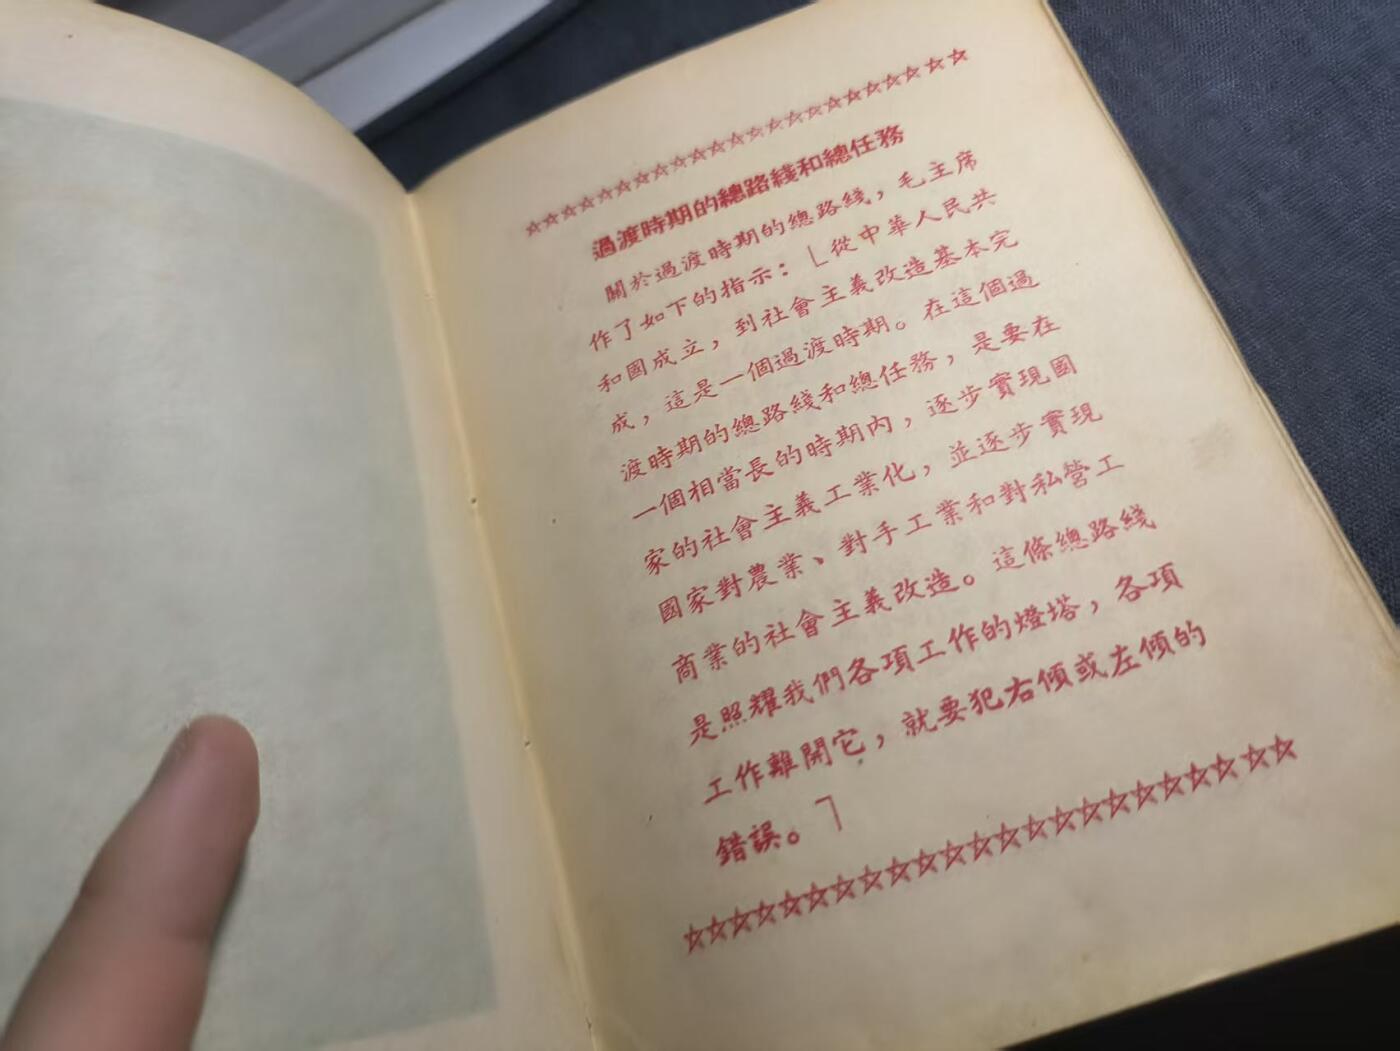 ☆☆☆☆☆☆☆☆☆☆☆☆☆☆☆☆☆☆☆☆☆☆☆☆
過渡時期的總路綫和總任務
關於過渡時期的總路綫，毛主席
作了如下的指示：「從中華人民共
和國成立，到社會主義改造基本完
成，這是一個過渡時期。在這個過
渡時期的總路綫和總任務，是要在
一個相當長的時期內，逐步實現國
家的社會主義工業化，並逐步實現
國家對農業、對手工業和對私營工
商業的社會主義改造。這條總路綫
是照耀我們各項工作的燈塔，各項
工作離開它，就要犯右傾或左傾的
錯誤。」
☆☆☆☆☆☆☆☆☆☆☆☆☆☆☆☆☆☆☆☆☆☆☆☆